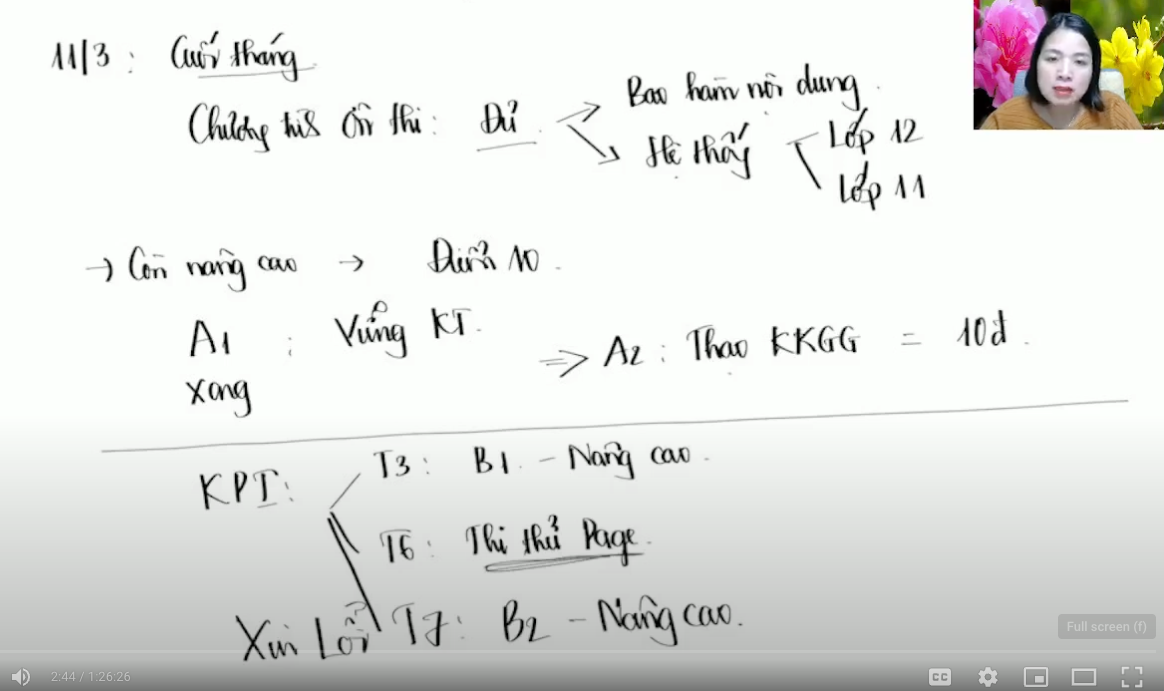 11/3 : Cuối tháng
Chương trình ôn thi : Đủ
Bao hàm nội dung
Hệ thống
Lớp 12
Lớp 11
→ Còn nâng cao → Điểm 10 .
A1 : Vững KT .
xong
⇒ A2 : Thao KKGG = 10đ .
KPT :
T3 : B1 . - Nâng cao .
T6 : Thi thử Page .
T7 : B2 - Nâng cao .
Xin Lỗi
Full screen (f)
2:44 / 1:26:26
CC